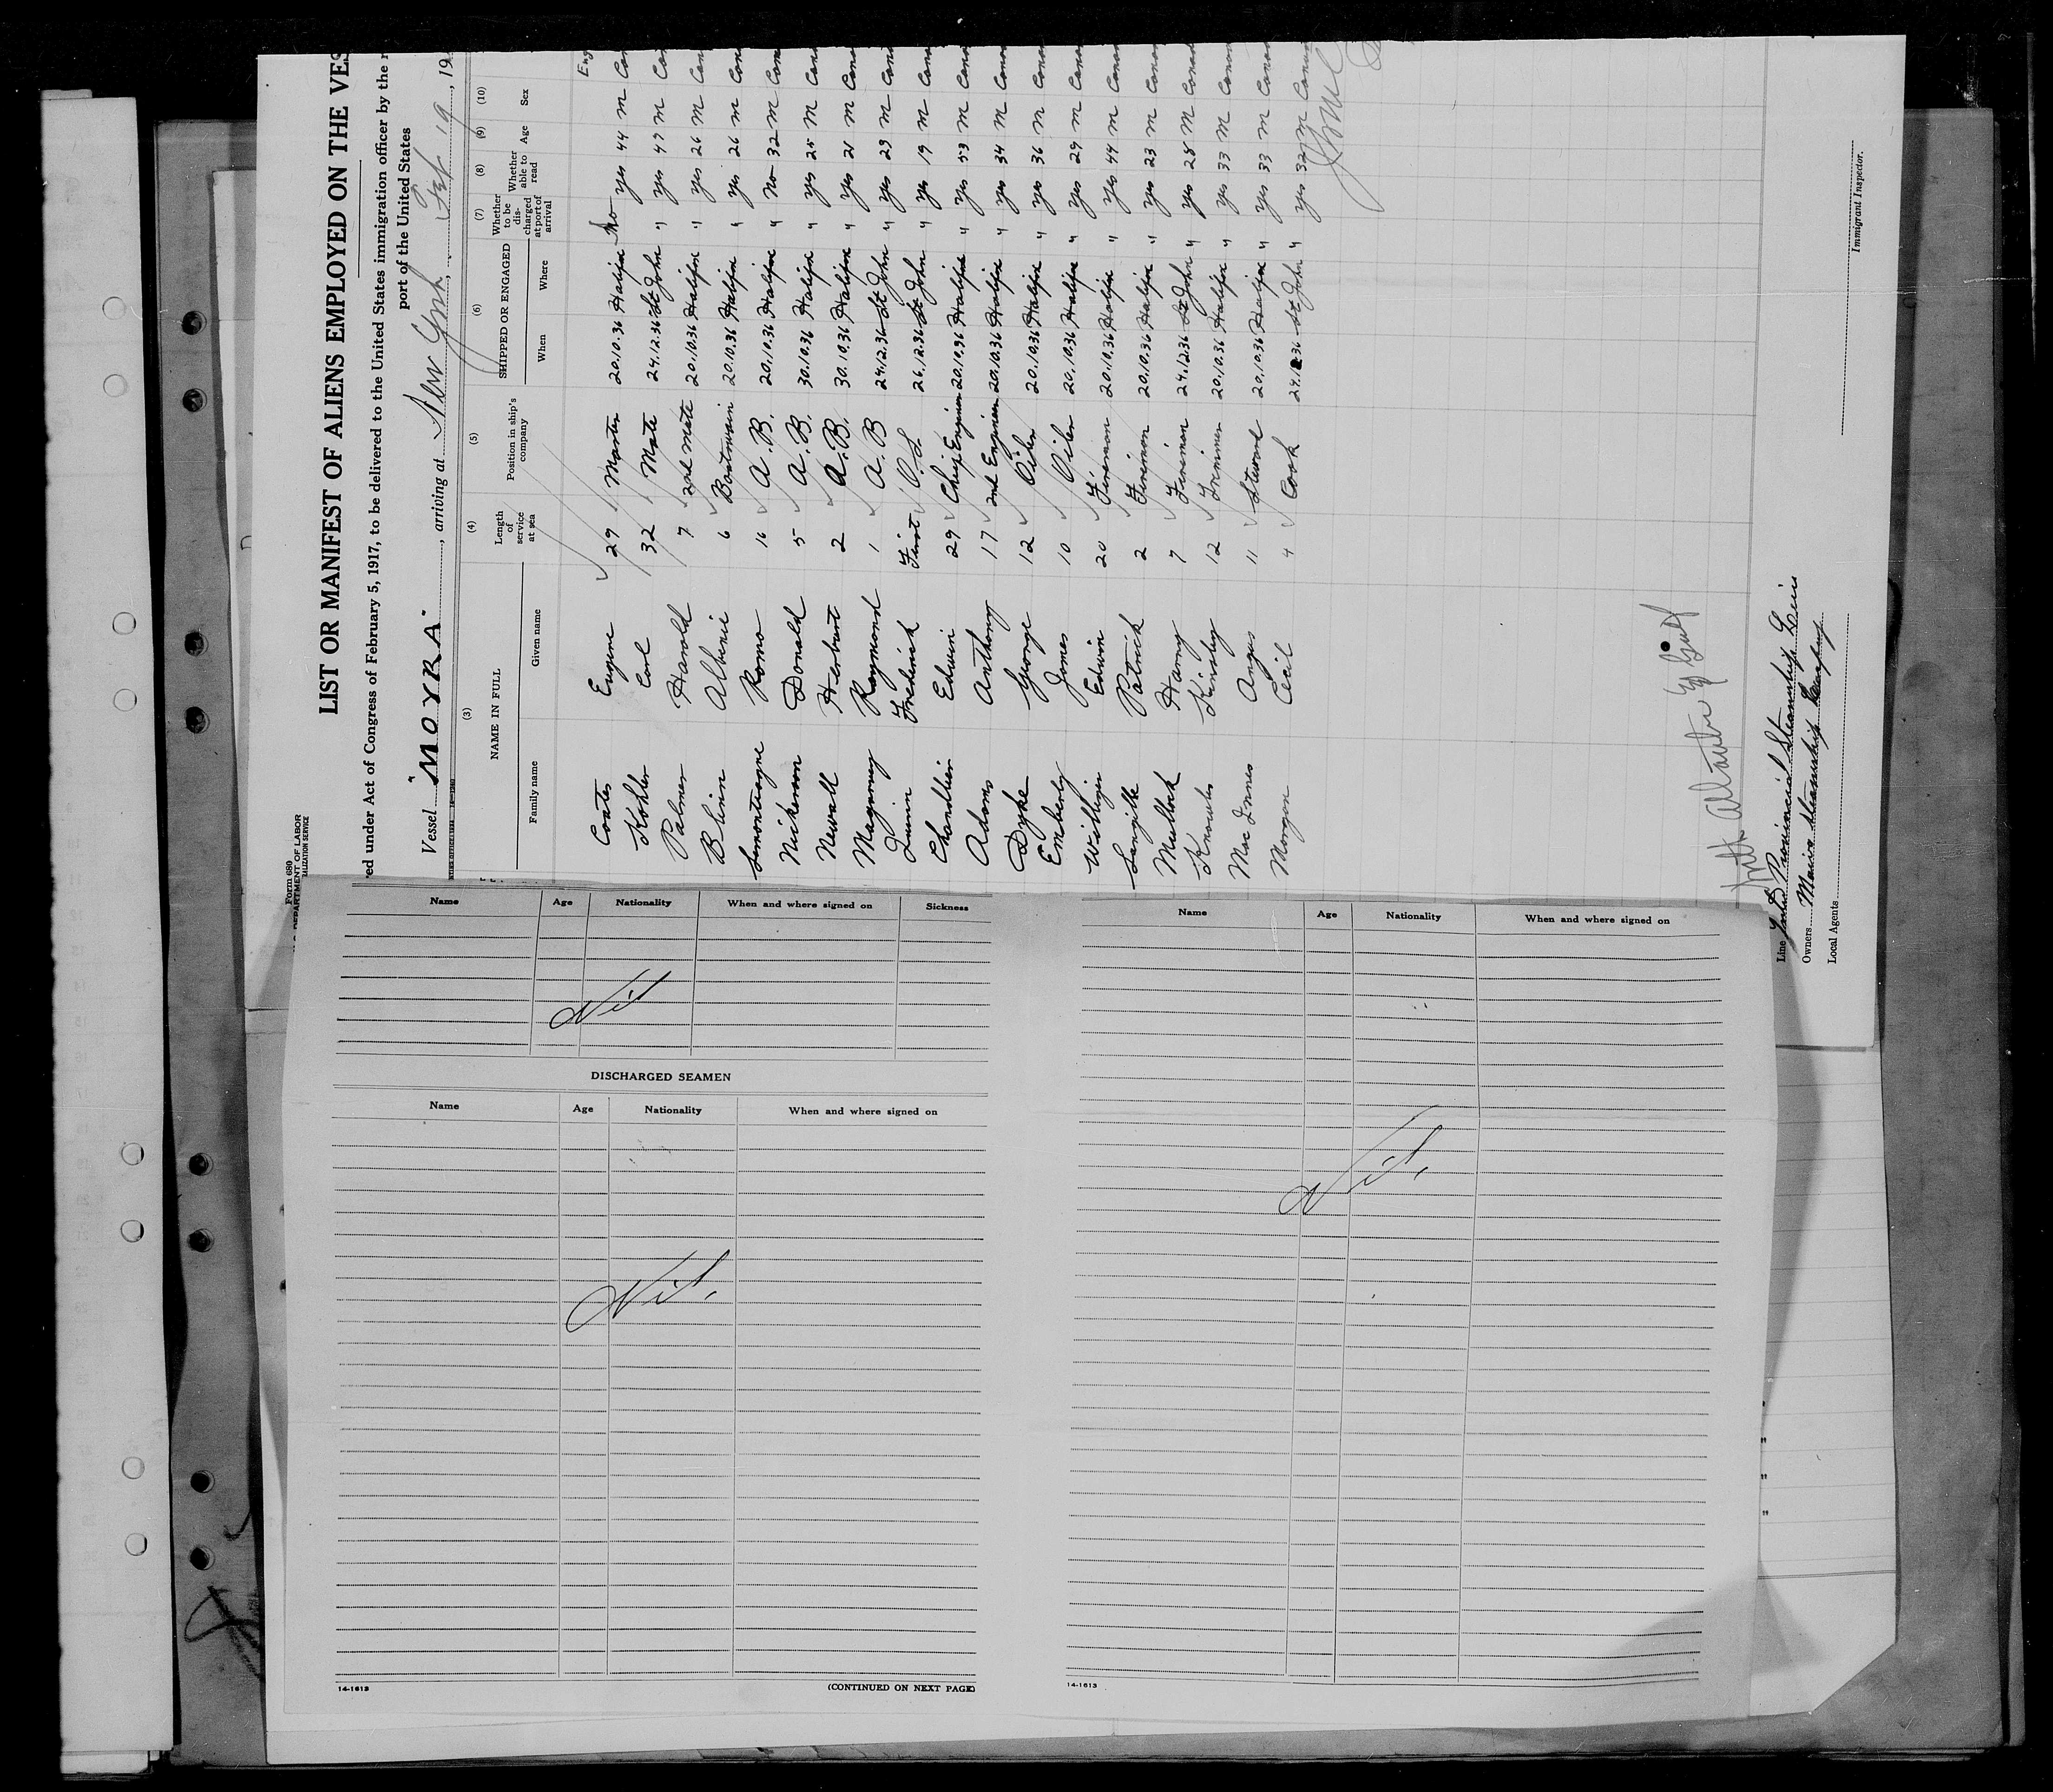 Form 680
DEPARTMENT OF LABOR
LIST OR MANIFEST OF ALIENS EMPLOYED ON THE VES
ed under Act of Congress of February 5, 1917, to be delivered to the United States immigration officer by the r
port of the United States
Vessel "MOYRA", arriving at New York, Feb 19, 19
(3) (4) (5) (6) (7) (8) (9) (10)
NAME IN FULL Length of service at sea Position in ship's company SHIPPED OR ENGAGED Whether to be discharged at port of arrival Whether able to read Age Sex
Family name Given name When Where
Eng
Coates Eugene 29 Master 20.10.36 Halifax No yes 44 m Can
Kohler Carl 32 Mate 24.12.36 St John " yes 47 m Can
Palmer Harold 7 2nd Mate 20.10.36 Halifax " yes 26 m Can
Blinn Albenie 6 Boatswain 20.10.36 Halifax " yes 26 m Can
Lamontagne Romo 16 A.B. 20.10.36 Halifax " No 32 m Can
Nickerson Donald 5 A.B. 30.10.36 Halifax " yes 25 m Can
Newall Herbert 2 A.B. 30.10.36 Halifax " yes 21 m Cana
Magarvey Raymond 1 A.B 24.12.36 St John " yes 23 m Can
Quinn Frederick First O.S. 26.12.36 St John " yes 19 m Can
Chandlier Edwin 29 Chief Engineer 20.10.36 Halifax " yes 53 m Can
Adams Anthony 17 2nd Engineer 20.10.36 Halifax " yes 34 m Cana
Dyke George 12 Oiler 20.10.36 Halifax " yes 36 m Cana
Emberly James 10 Oiler 20.10.36 Halifax " yes 29 m Cana
Edwin 20 Fireman 20.10.36 Halifax " yes 44 m Cana
Langille Patrick 2 Fireman 20.10.36 Halifax " yes 23 m Cana
Mullock Harry 7 Fireman 24.12.36 St John " yes 28 m Cana
Knowles Kinsley 12 Trimmer 20.10.36 Halifax " yes 33 m Cana
Mac Innes Angus 11 Steward 20.10.36 Halifax " yes 33 m Cana
Morgan Cecil 4 Cook 24.12.36 St John " yes 32 m Cana
Line Provincial Steamship Line
Owners Steamship Company
Local Agents
Immigrant Inspector.
Name Age Nationality When and where signed on Sickness
Nil
DISCHARGED SEAMEN
Name Age Nationality When and where signed on
Nil.
14-1613 (CONTINUED ON NEXT PAGE)
Name Age Nationality When and where signed on
Nil.
14-1613